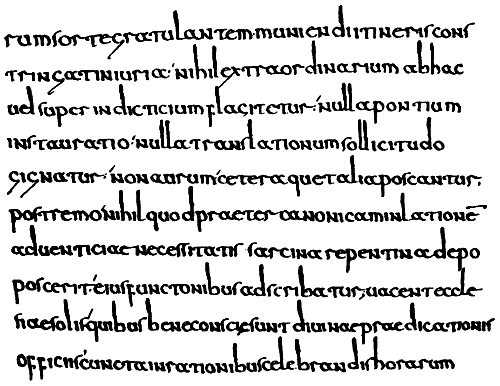 rumsortegratulantemmuniendiitineriscons
tringatiniuria·nihilextraordinarium abhac
uelsuper indicticium flagitetur·nullapontium
instauratio·nullatranslationumsollicitudo
gignatur·nonaurumceteraquetaliaposcantur;
postremonihilquodpraetercanonicaminlationē
aduenticiaenecessitatis sarcinarepentinadepo
posceriteiusfunctonibusadscribatur;uacenteccle
siaesolisquibusbeneconsciesunt diuinaepraedicationis
officiiscunctainrationibuscelebrandishorarum